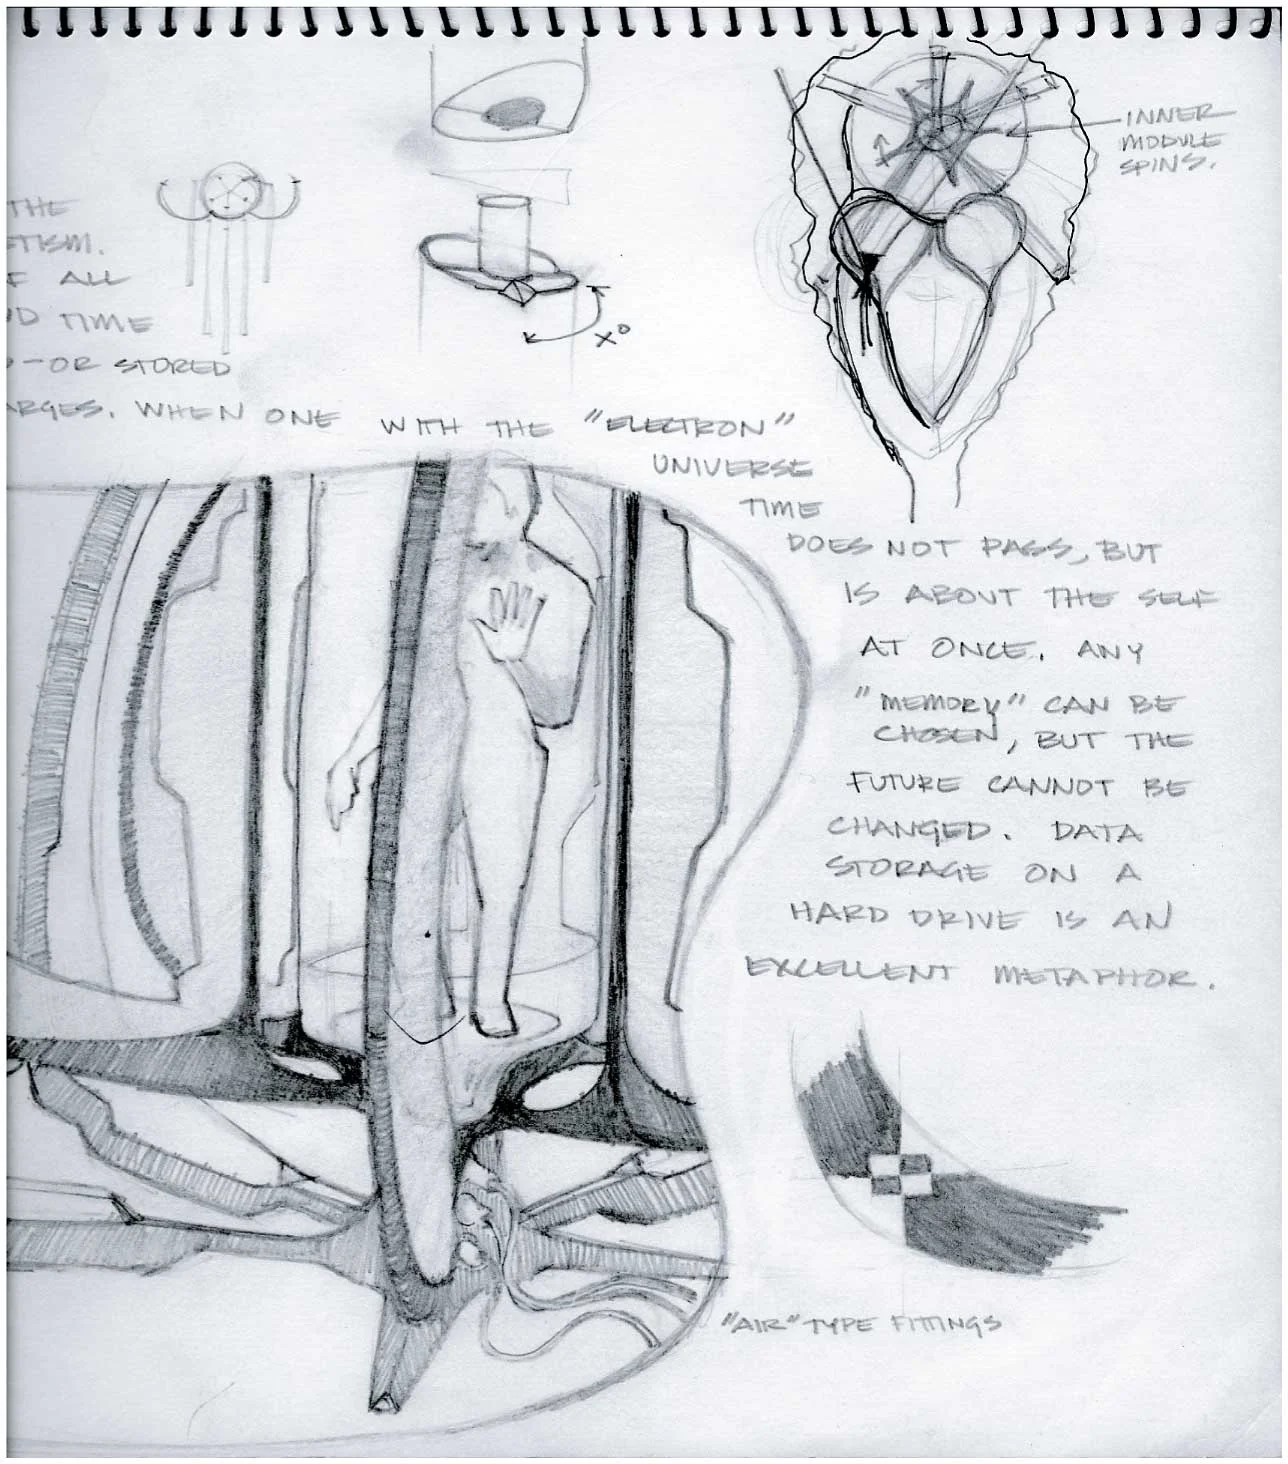 THE
ETISM.
F ALL
D TIME
-OR STORED
ARGES. WHEN ONE WITH THE "ELECTRON"
UNIVERSE
TIME
DOES NOT PASS, BUT
IS ABOUT THE SELF
AT ONCE. ANY
"MEMORY" CAN BE
CHOSEN, BUT THE
FUTURE CANNOT BE
CHANGED. DATA
STORAGE ON A
HARD DRIVE IS AN
EXCELLENT METAPHOR.
X°
INNER
MODULE
SPINS.
"AIR" TYPE FITTINGS